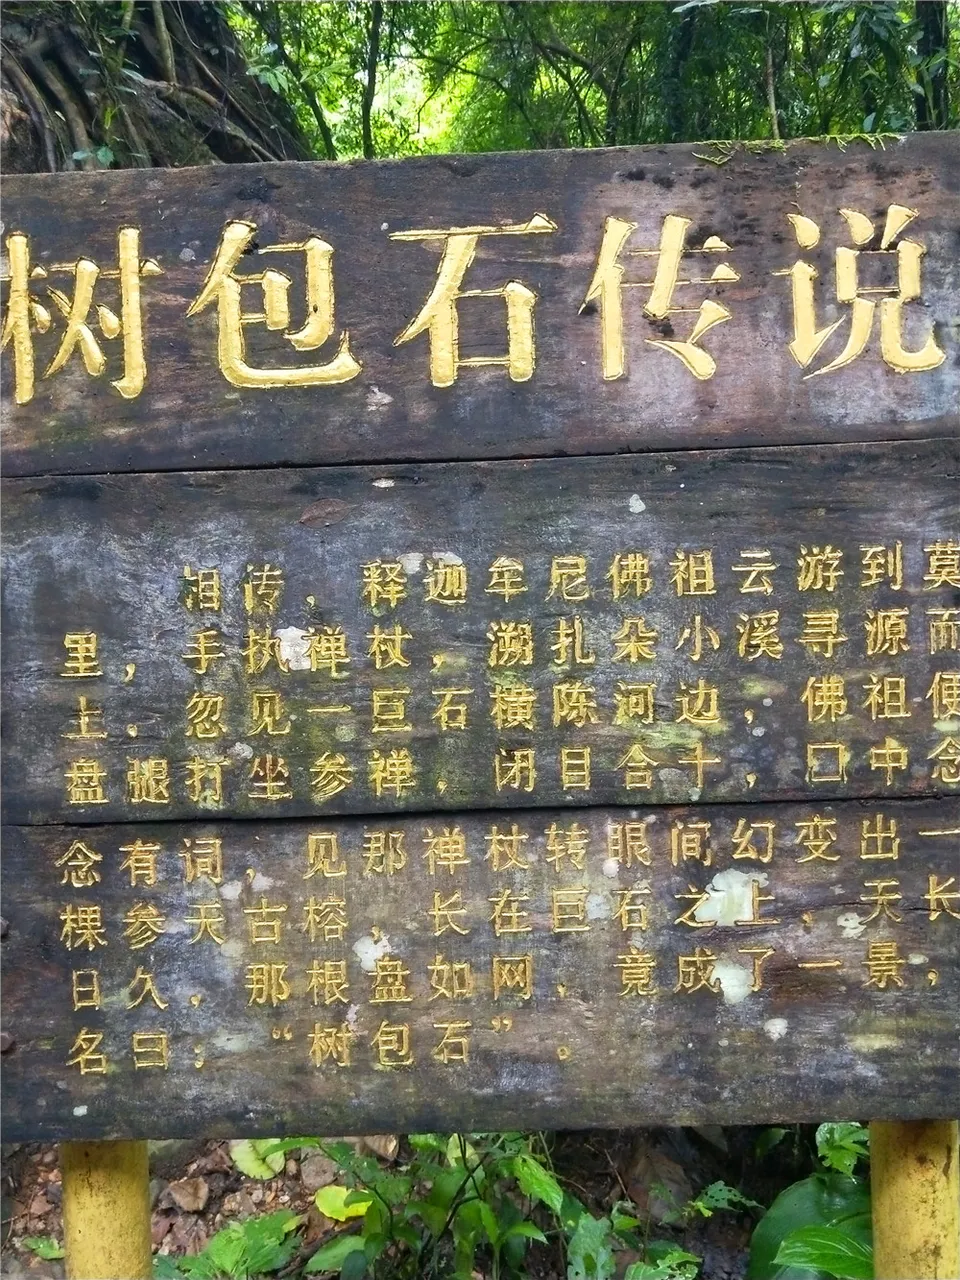 树包石传说
相传，释迦牟尼佛祖云游到莫
里，手执禅杖，溯扎朵小溪寻源而
上。忽见一巨石横陈河边，佛祖便
盘腿打坐参禅，闭目合十，口中念
念有词，见那禅杖转眼间幻变出一
棵参天古榕，长在巨石之上，天长
日久，那根盘如网，竟成了一景，
名曰：“树包石”。